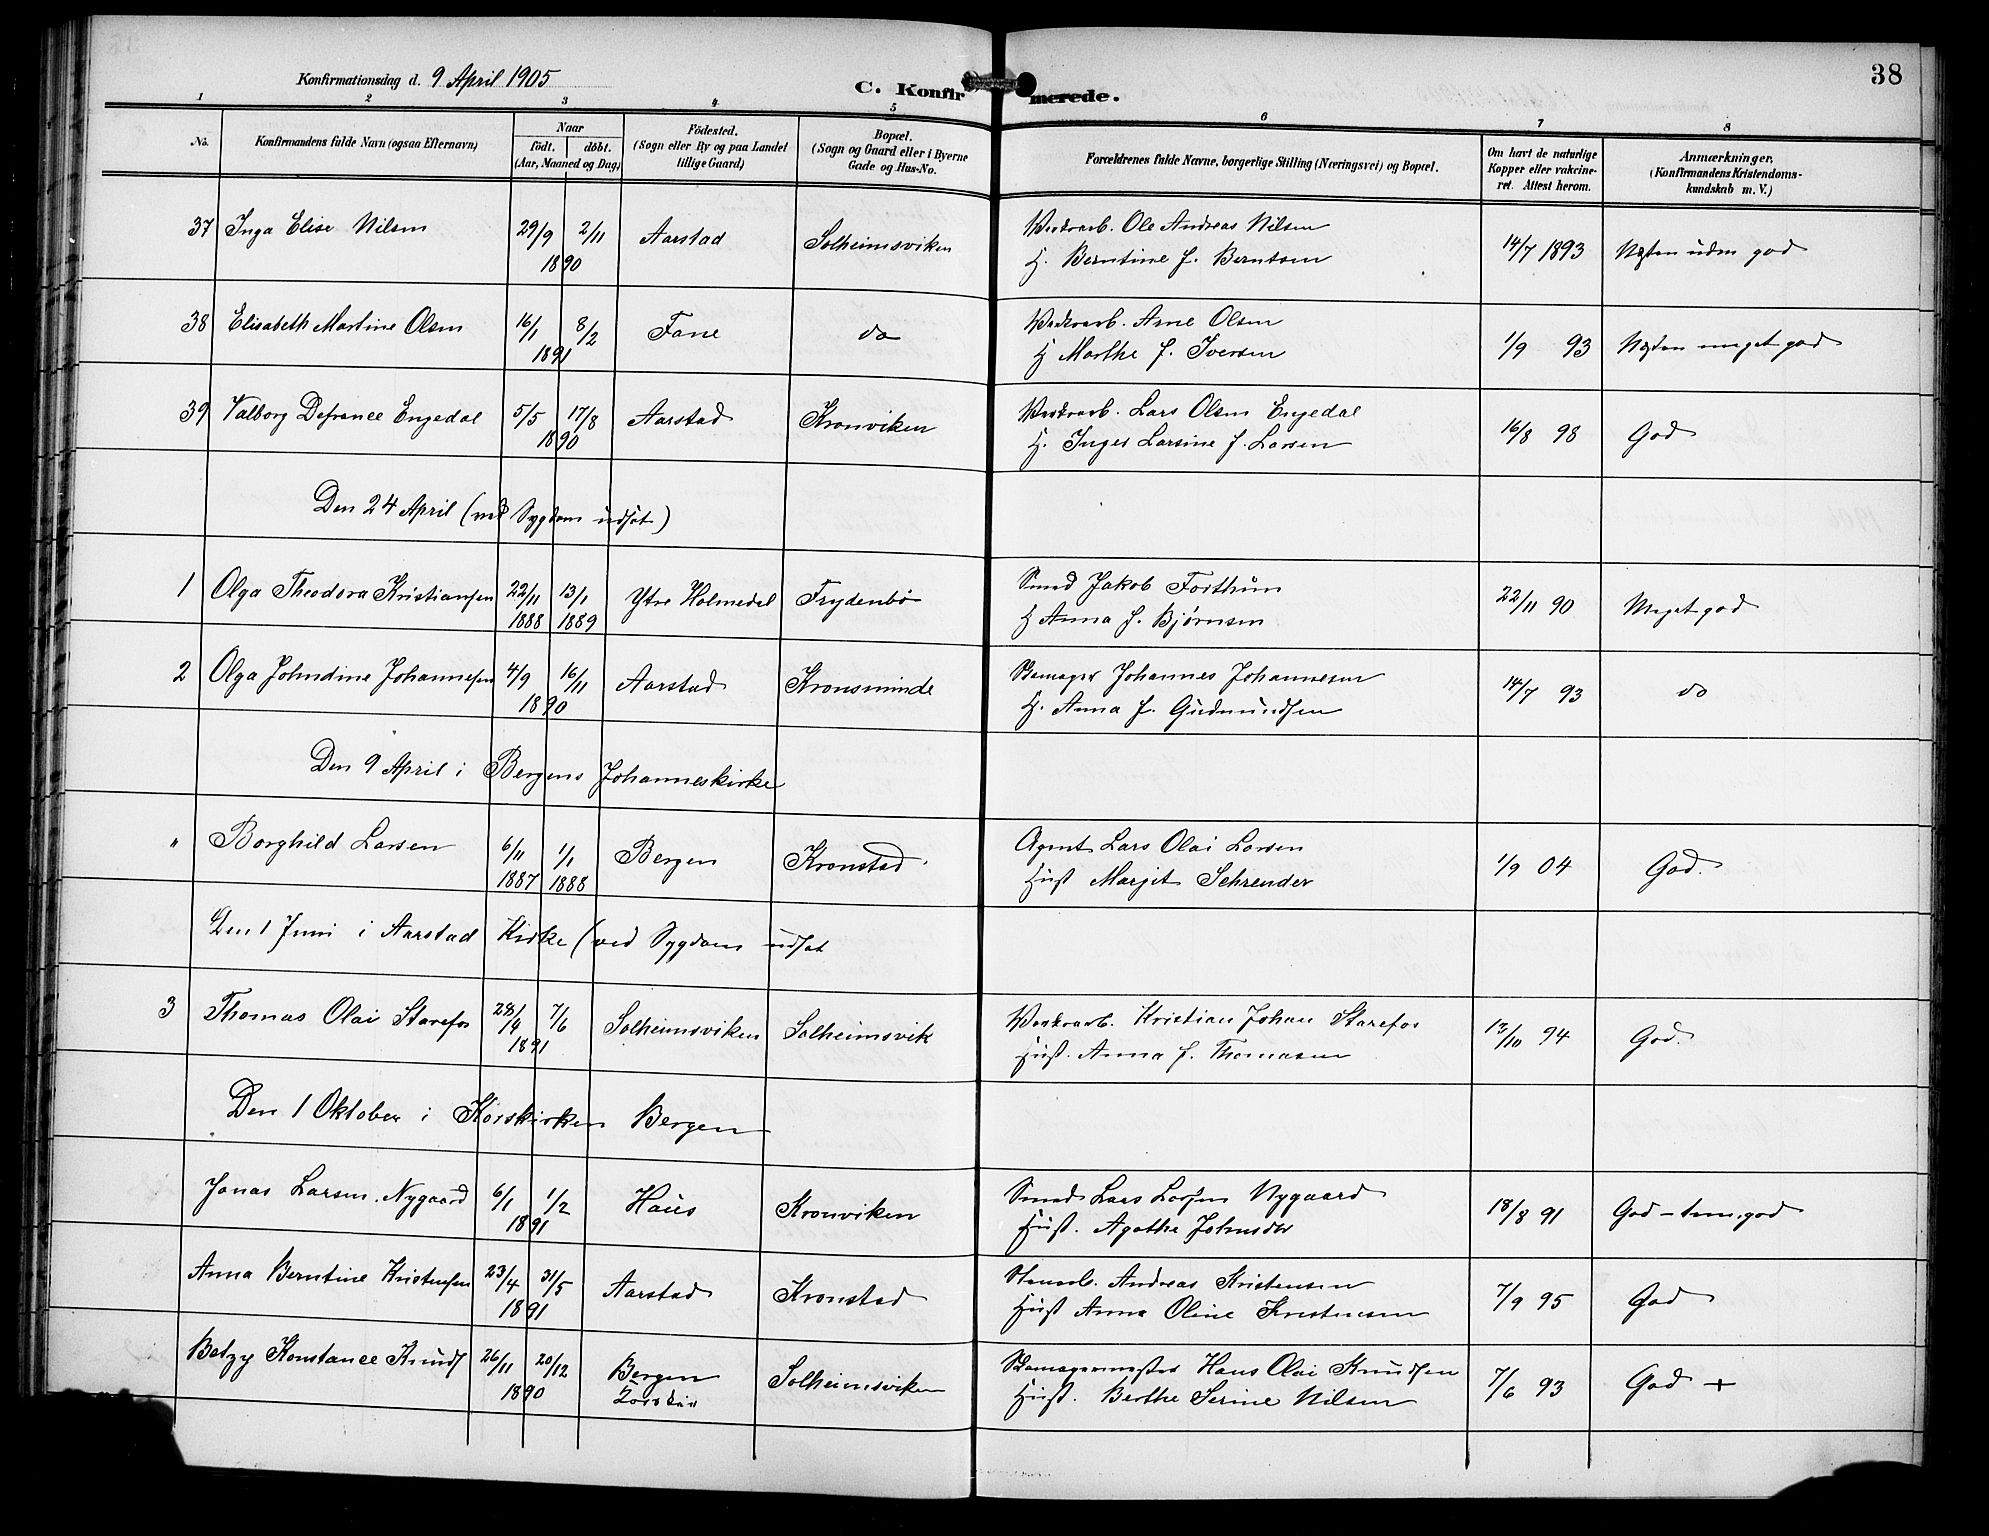 38
Konfirmationsdag d. 9 April 1905
C. Konfirmerede.
1 2 3 4 5 6 7 8
No.
Konfirmandens fulde Navn (ogsaa Efternavn)
Naar
født. døbt.
(Aar, Maaned og Dag)
Fødested.
(Sogn eller By og paa Landet
tillige Gaard)
Bopæl.
(Sogn og Gaard eller i Byerne
Gade og Hus-No.
Forældrenes fulde Navne, borgerlige Stilling (Næringsvei) og Bopæl.
Om havt de naturlige
Kopper eller vakcine-
ret. Attest herom.
Anmærkninger,
(Konfirmandens Kristendoms-
kundskab m. V.)
37 Inga Elise Nilsen 29/9 2/11 1890 Aarstad Solheimsviken
Verkarb. Ole Andreas Nilsen
H. Berntine f. Berntsen
14/7 1893 Næsten uden god
38 Elisabeth Martine Olsen 16/1 8/2 1891 Fane do
Verkarb. Arne Olsen
H Marthe f. Iversen
1/9 93 Næsten meget god
39 Valborg Defrance Engedal 5/5 17/8 1890 Aarstad Kronviken
Verkarb. Lars Olsen Engedal
H. Inger Larsine f. Larsen
16/8 98 God
Den 24 April (ved Sygdom udsat)
1 Olga Theodora Kristiansen 22/11 1888 13/1 1889 Ytre Holmedal Frydenbø
Smed Jakob Forthun
H Anna f. Bjørnsen
22/11 90 Meget god
2 Olga Johndine Johannesen 4/9 16/11 1890 Aarstad Kronsminde
Skomager Johannes Johannesen
H. Anna f. Gudmundsen
14/7 93 do
Den 9 April i Bergens Johanneskirke
" Borghild Larsen 6/11 1887 1/1 1888 Bergen Kronstad
Agent Lars Olai Larsen
Hust Margit Schreuder
1/9 04 God.
Den 1 Juni i Aarstad Kirke (ved Sygdom udsat
3 Thomas Olai Starefos 28/4 7/6 1891 Solheimsviken Solheimsvik
Verkarb. Kristian Johan Starefos
Hust. Anna f. Thomasen
13/10 94 God.
Den 1 Oktober i Korskirken Bergen
Jonas Larsen Nygaard 6/1 1/2 1891 Haus Kronviken
Smed Lars Larsen Nygaard
Hust. Agathe Johnsdtr
18/8 91 God – tem. god
Anna Berntine Kristensen 23/4 31/5 1891 Aarstad Kronstad
Andreas Kristensen
Hust Anna Oline Kristensen
7/9 95 God
Betzy Konstance Knuds 26/11 20/12 1890 Bergen Solheimsviken
Skomagermester Hans Olai Knudsen
Hust. Berthe Serine Nilsen
7/6 93 God +